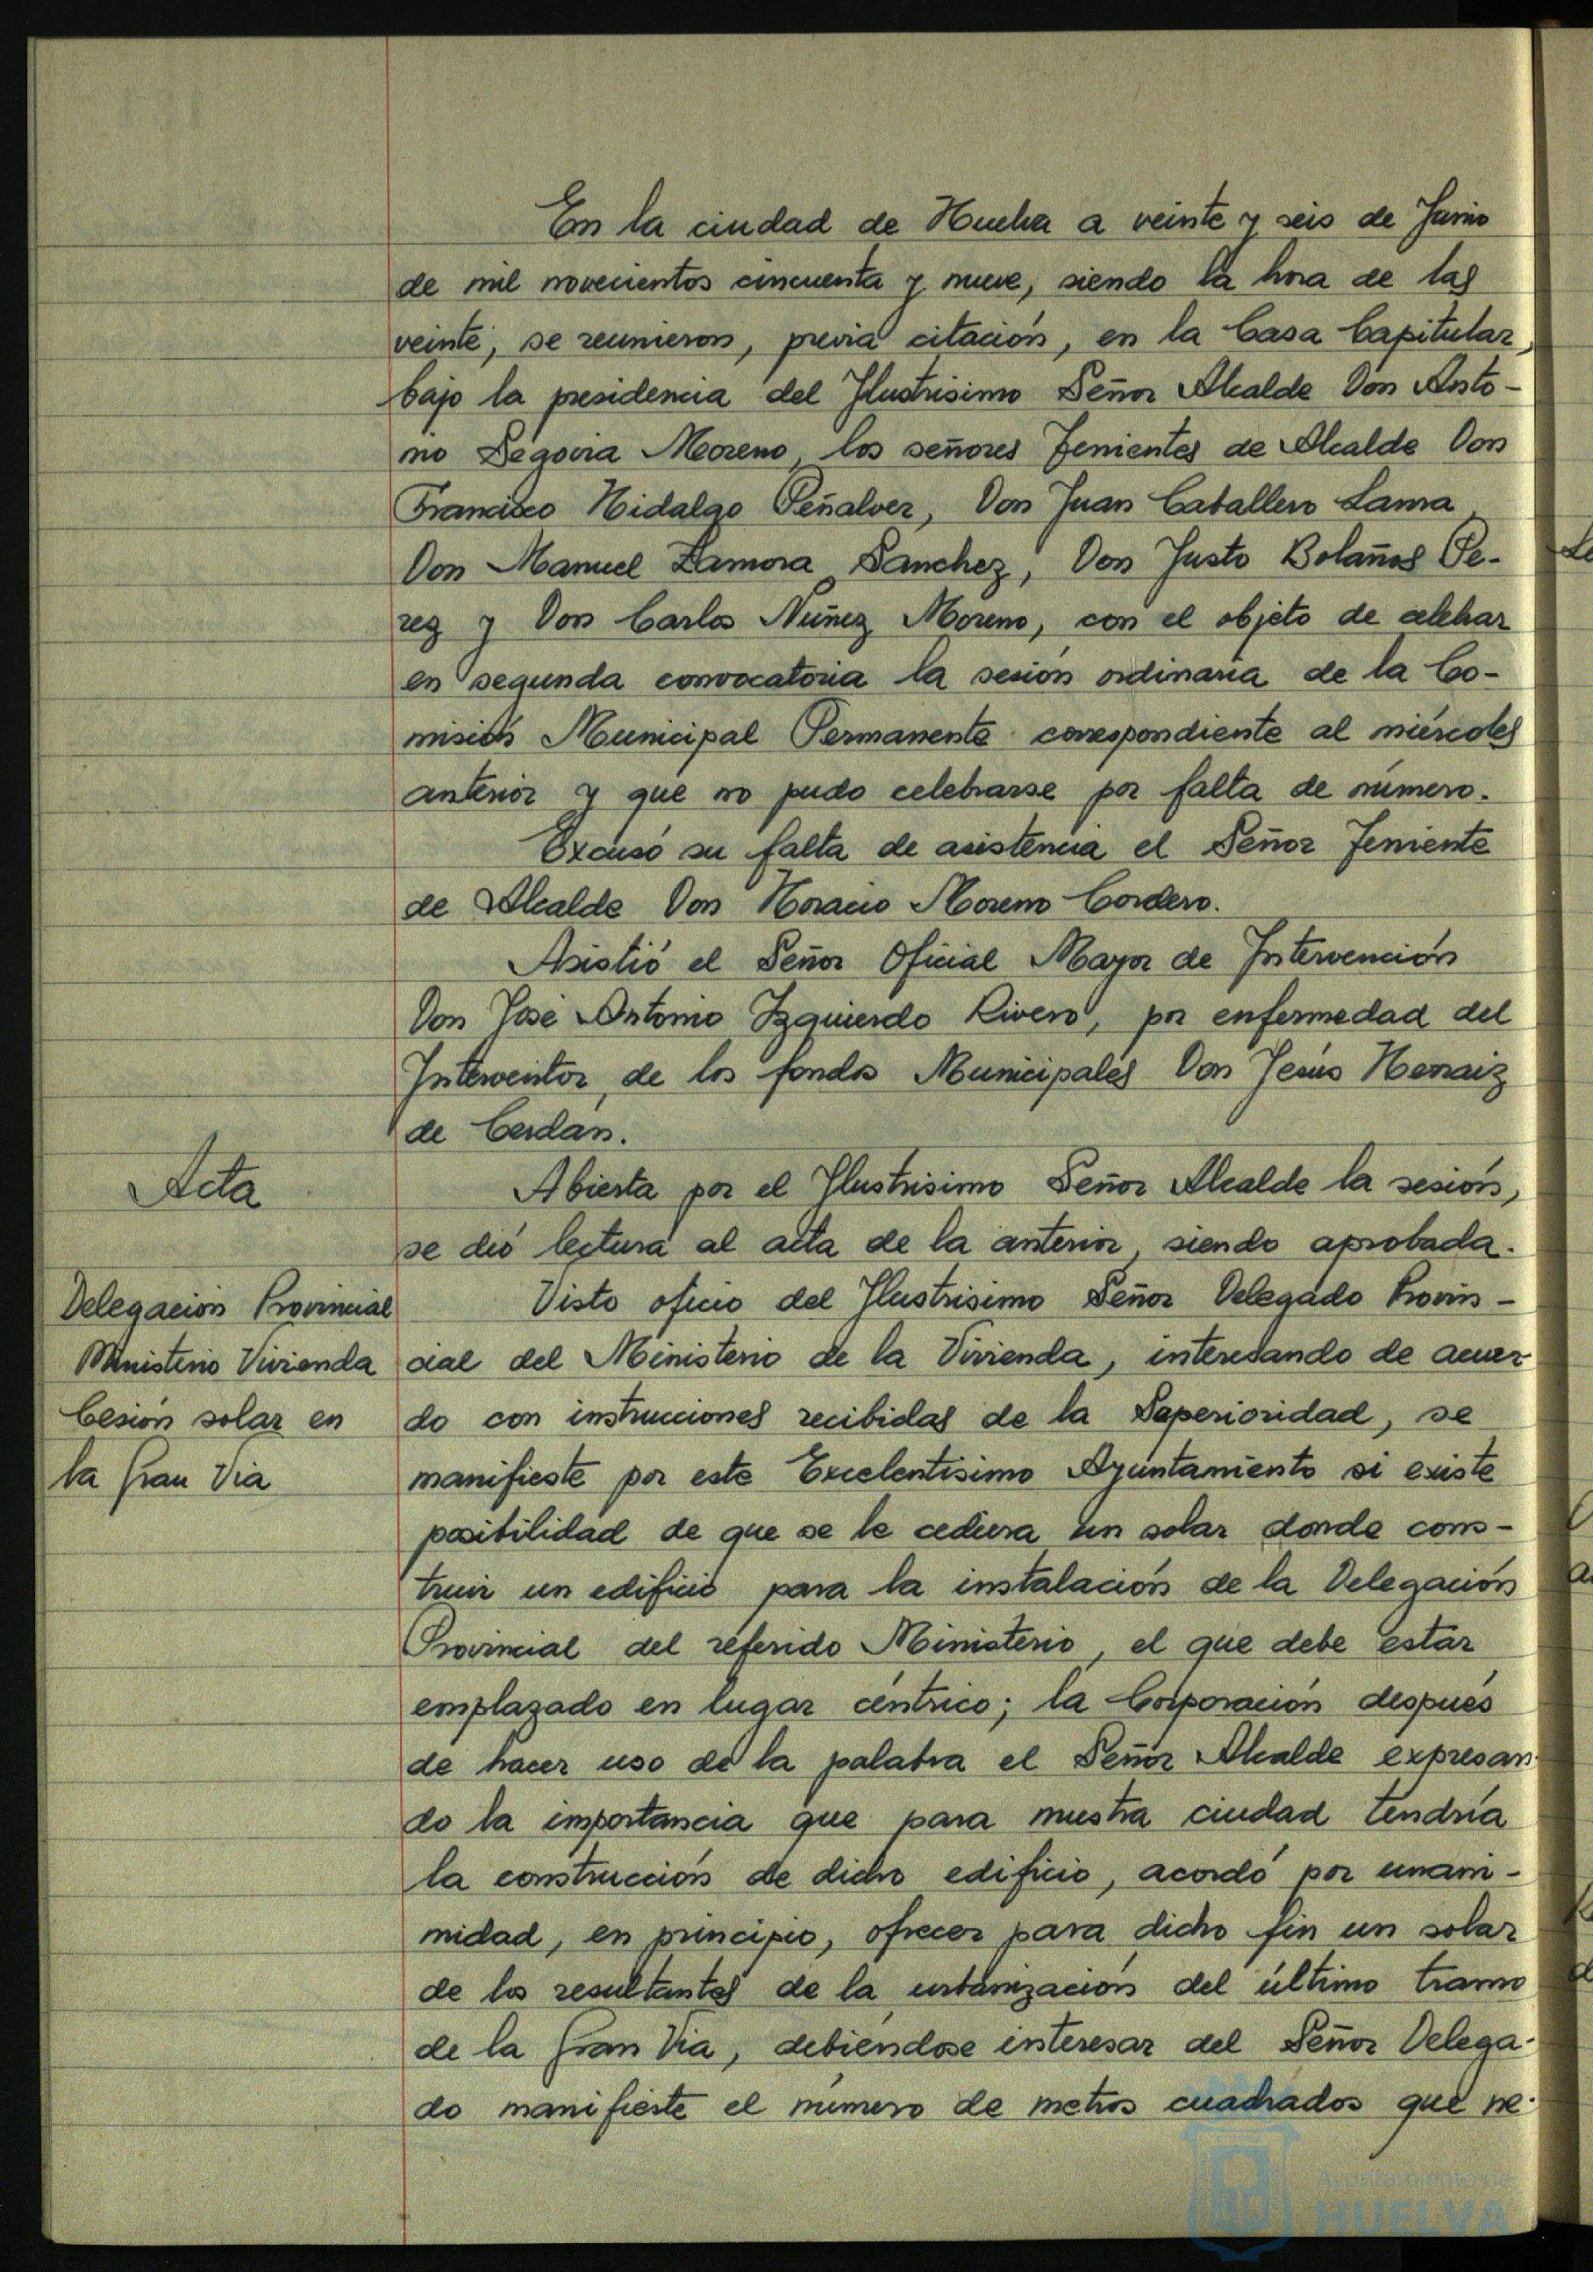 En la ciudad de Huelva a veinte y seis de Junio
de mil novecientos cincuenta y nueve, siendo la hora de las
veinte, se reunieron, previa citación, en la Casa Capitular,
bajo la presidencia del Ilustrisimo Señor Alcalde Don Anto-
nio Segovia Moreno, los señores Tenientes de Alcalde Don
Francisco Hidalgo Peñalver, Don Juan Caballero Lama,
Don Manuel Zamora Sanchez, Don Justo Bolaños Pe-
rez y Don Carlos Nuñez Moreno, con el objeto de celebrar
en segunda convocatoria la sesión ordinaria de la Co-
misión Municipal Permanente correspondiente al miércoles
anterior y que no pudo celebrarse por falta de número.
Excusó su falta de asistencia el Señor Teniente
de Alcalde Don Horacio Moreno Cordero.
Asistió el Señor Oficial Mayor de Intervención
Don José Antonio Izquierdo Rivero, por enfermedad del
Interventor de los fondos Municipales Don Jesús Hernaiz
de Cerdán.
Acta
Abierta por el Ilustrisimo Señor Alcalde la sesión,
se dió lectura al acta de la anterior, siendo aprobada.
Delegación Provincial
Ministerio Vivienda
Cesión solar en
la Gran Via
Visto oficio del Ilustrisimo Señor Delegado Provin-
cial del Ministerio de la Vivienda, interesando de acuer-
do con instrucciones recibidas de la Superioridad, se
manifieste por este Excelentisimo Ayuntamiento si existe
posibilidad de que se le cediera un solar donde cons-
truir un edificio para la instalación de la Delegación
Provincial del referido Ministerio, el que debe estar
emplazado en lugar céntrico; la Corporación después
de hacer uso de la palabra el Señor Alcalde expresan-
do la importancia que para nuestra ciudad tendría
la construcción de dicho edificio, acordó por unani-
midad, en principio, ofrecer para dicho fin un solar
de los resultantes de la urbanización del último tramo
de la Gran Via, debiéndose interesar del Señor Delega-
do manifieste el número de metros cuadrados que ne-
Ayuntamiento de
HUELVA